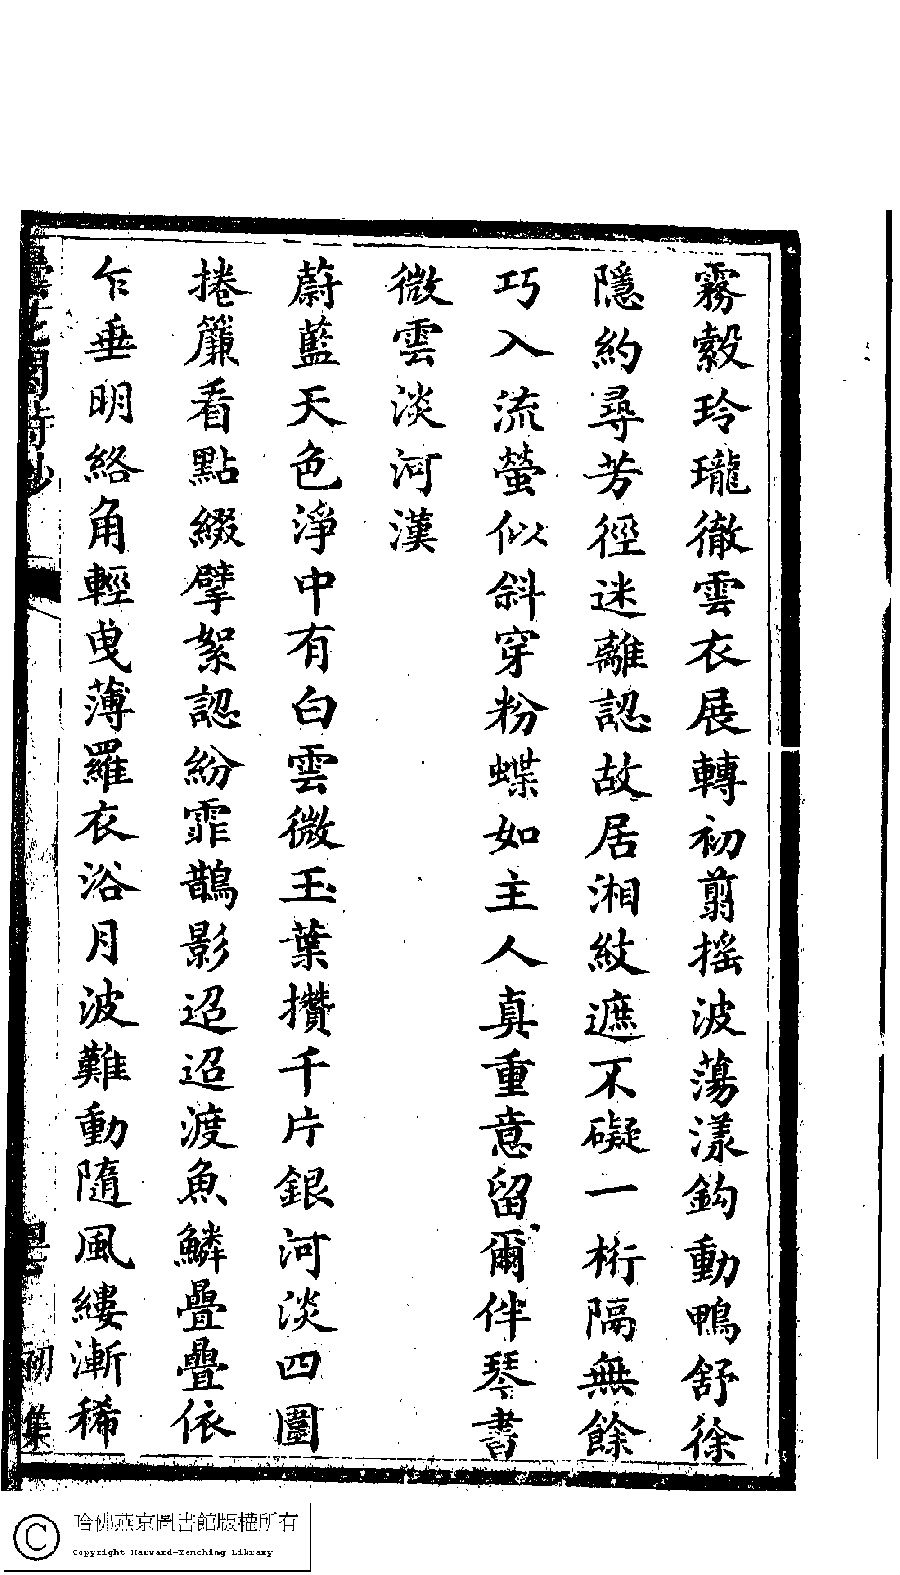 霧縠玲瓏徹雲衣展轉初翦搖波蕩漾鈎動鴨舒徐
隱約尋芳徑迷離認故居湘紋遮不礙一桁隔無餘
巧入流螢似斜穿粉蝶如主人真重意留爾伴琴書
微雲淡河漢
蔚藍天色淨中有白雲微玉葉攢千片銀河淡四圍
捲簾看點綴擘絮認紛霏鵲影迢迢渡魚鱗疊疊依
乍垂明絡角輕曳薄羅衣浴月波難動隨風縷漸稀
閣詩鈔
初集
哈佛燕京圖書館版權所有
Copyright Harvard-Yenching Library